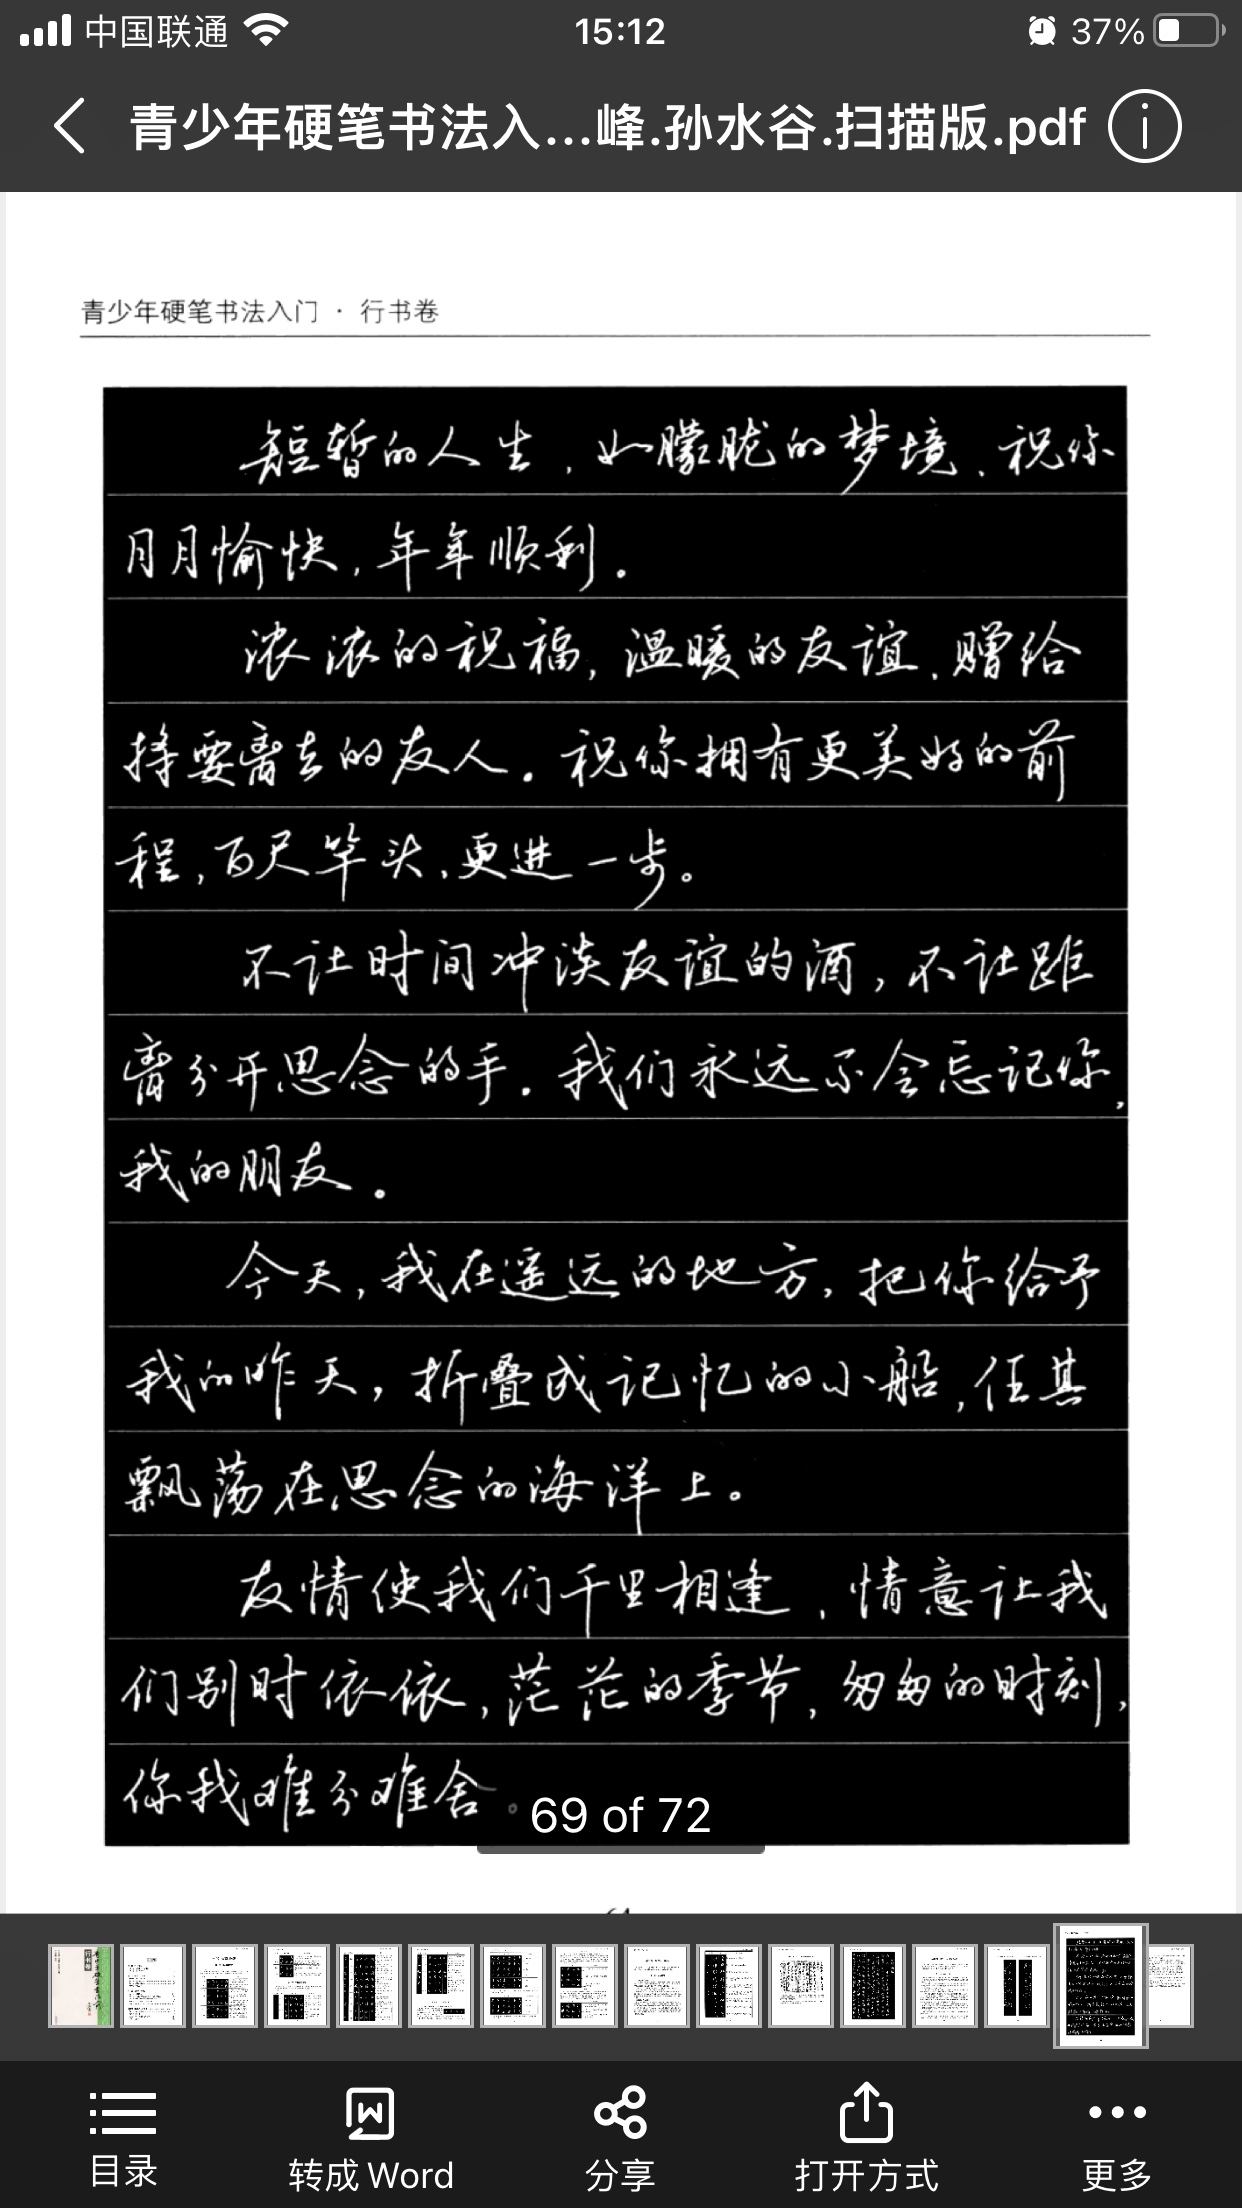 中国联通 15:12 37%
青少年硬笔书法入...峰.孙水谷.扫描版.pdf
青少年硬笔书法入门 · 行书卷
短暂的人生,如朦胧的梦境、祝你
月月愉快,年年顺利。
浓浓的祝福,温暖的友谊、赠给
将要离去的友人。祝你拥有更美好的前
程,百尺竿头,更进一步。
不让时间冲淡友谊的酒,不让距
离分开思念的手。我们永远不会忘记你,
我的朋友。
今天,我在遥远的地方,把你给予
我的昨天,折叠成记忆的小船,任其
飘荡在思念的海洋上。
友情使我们千里相逢,情意让我
们别时依依,茫茫的季节,匆匆的时刻,
你我难分难舍。
69 of 72
目录 转成Word 分享 打开方式 更多